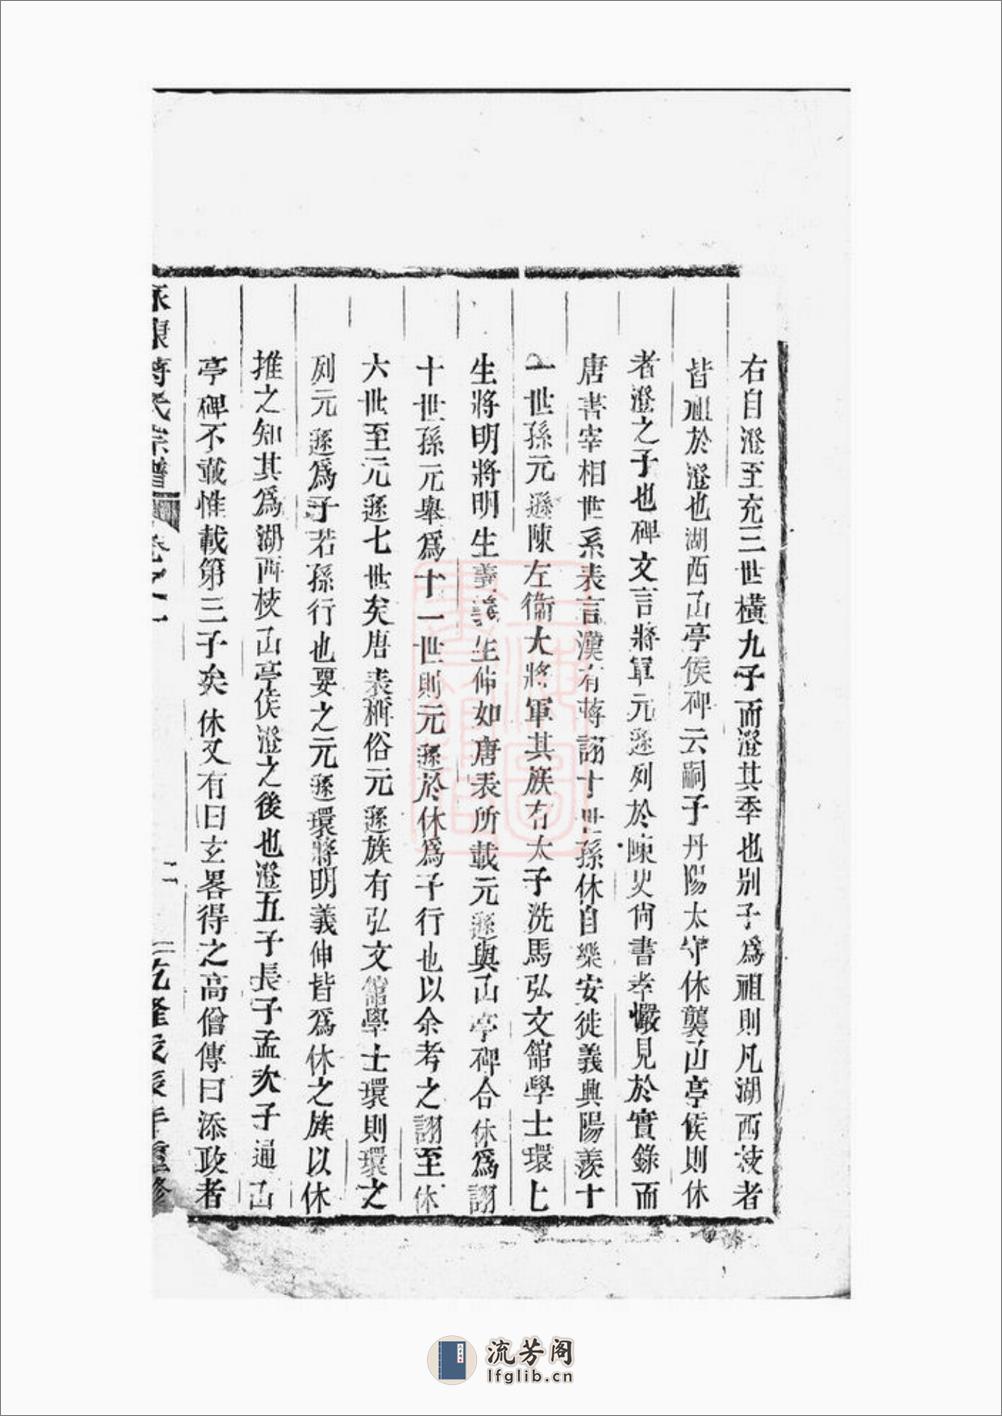 右自澄至充三世橫九子而澄其季也別子爲祖則凡湖西枝者
皆祖於澄也湖西山亭侯碑云嗣子丹陽太守休襲山亭侯則休
者澄之子也碑文言將軍元遜列於陳史尚書孝儼見於實錄而
唐書宰相世系表言漢有蔣詡十世孫休自樂安徙義興陽羨十
一世孫元遜陳左衞大將軍其族有太子洗馬弘文館學士環七
生將明將明生義義生伸如唐表所載元遜與山亭碑合休爲詡
十世孫元舉爲十一世則元遜於休爲子行也以余考之詡至休
六世至元遜七世矣唐表稱俗元遜族有弘文館學士環則環之
列元遜爲子若孫行也要之元遜環將明義伸皆爲休之族以休
推之知其爲湖西枝山亭侯澄之後也澄五子長子孟次子通山
亭碑不載惟載第三子矣休又有曰玄畧得之高僧傳曰添政者
永康蔣氏宗譜 卷之一 二 乾隆戊辰年重修
流芳阁
lfglib.cn